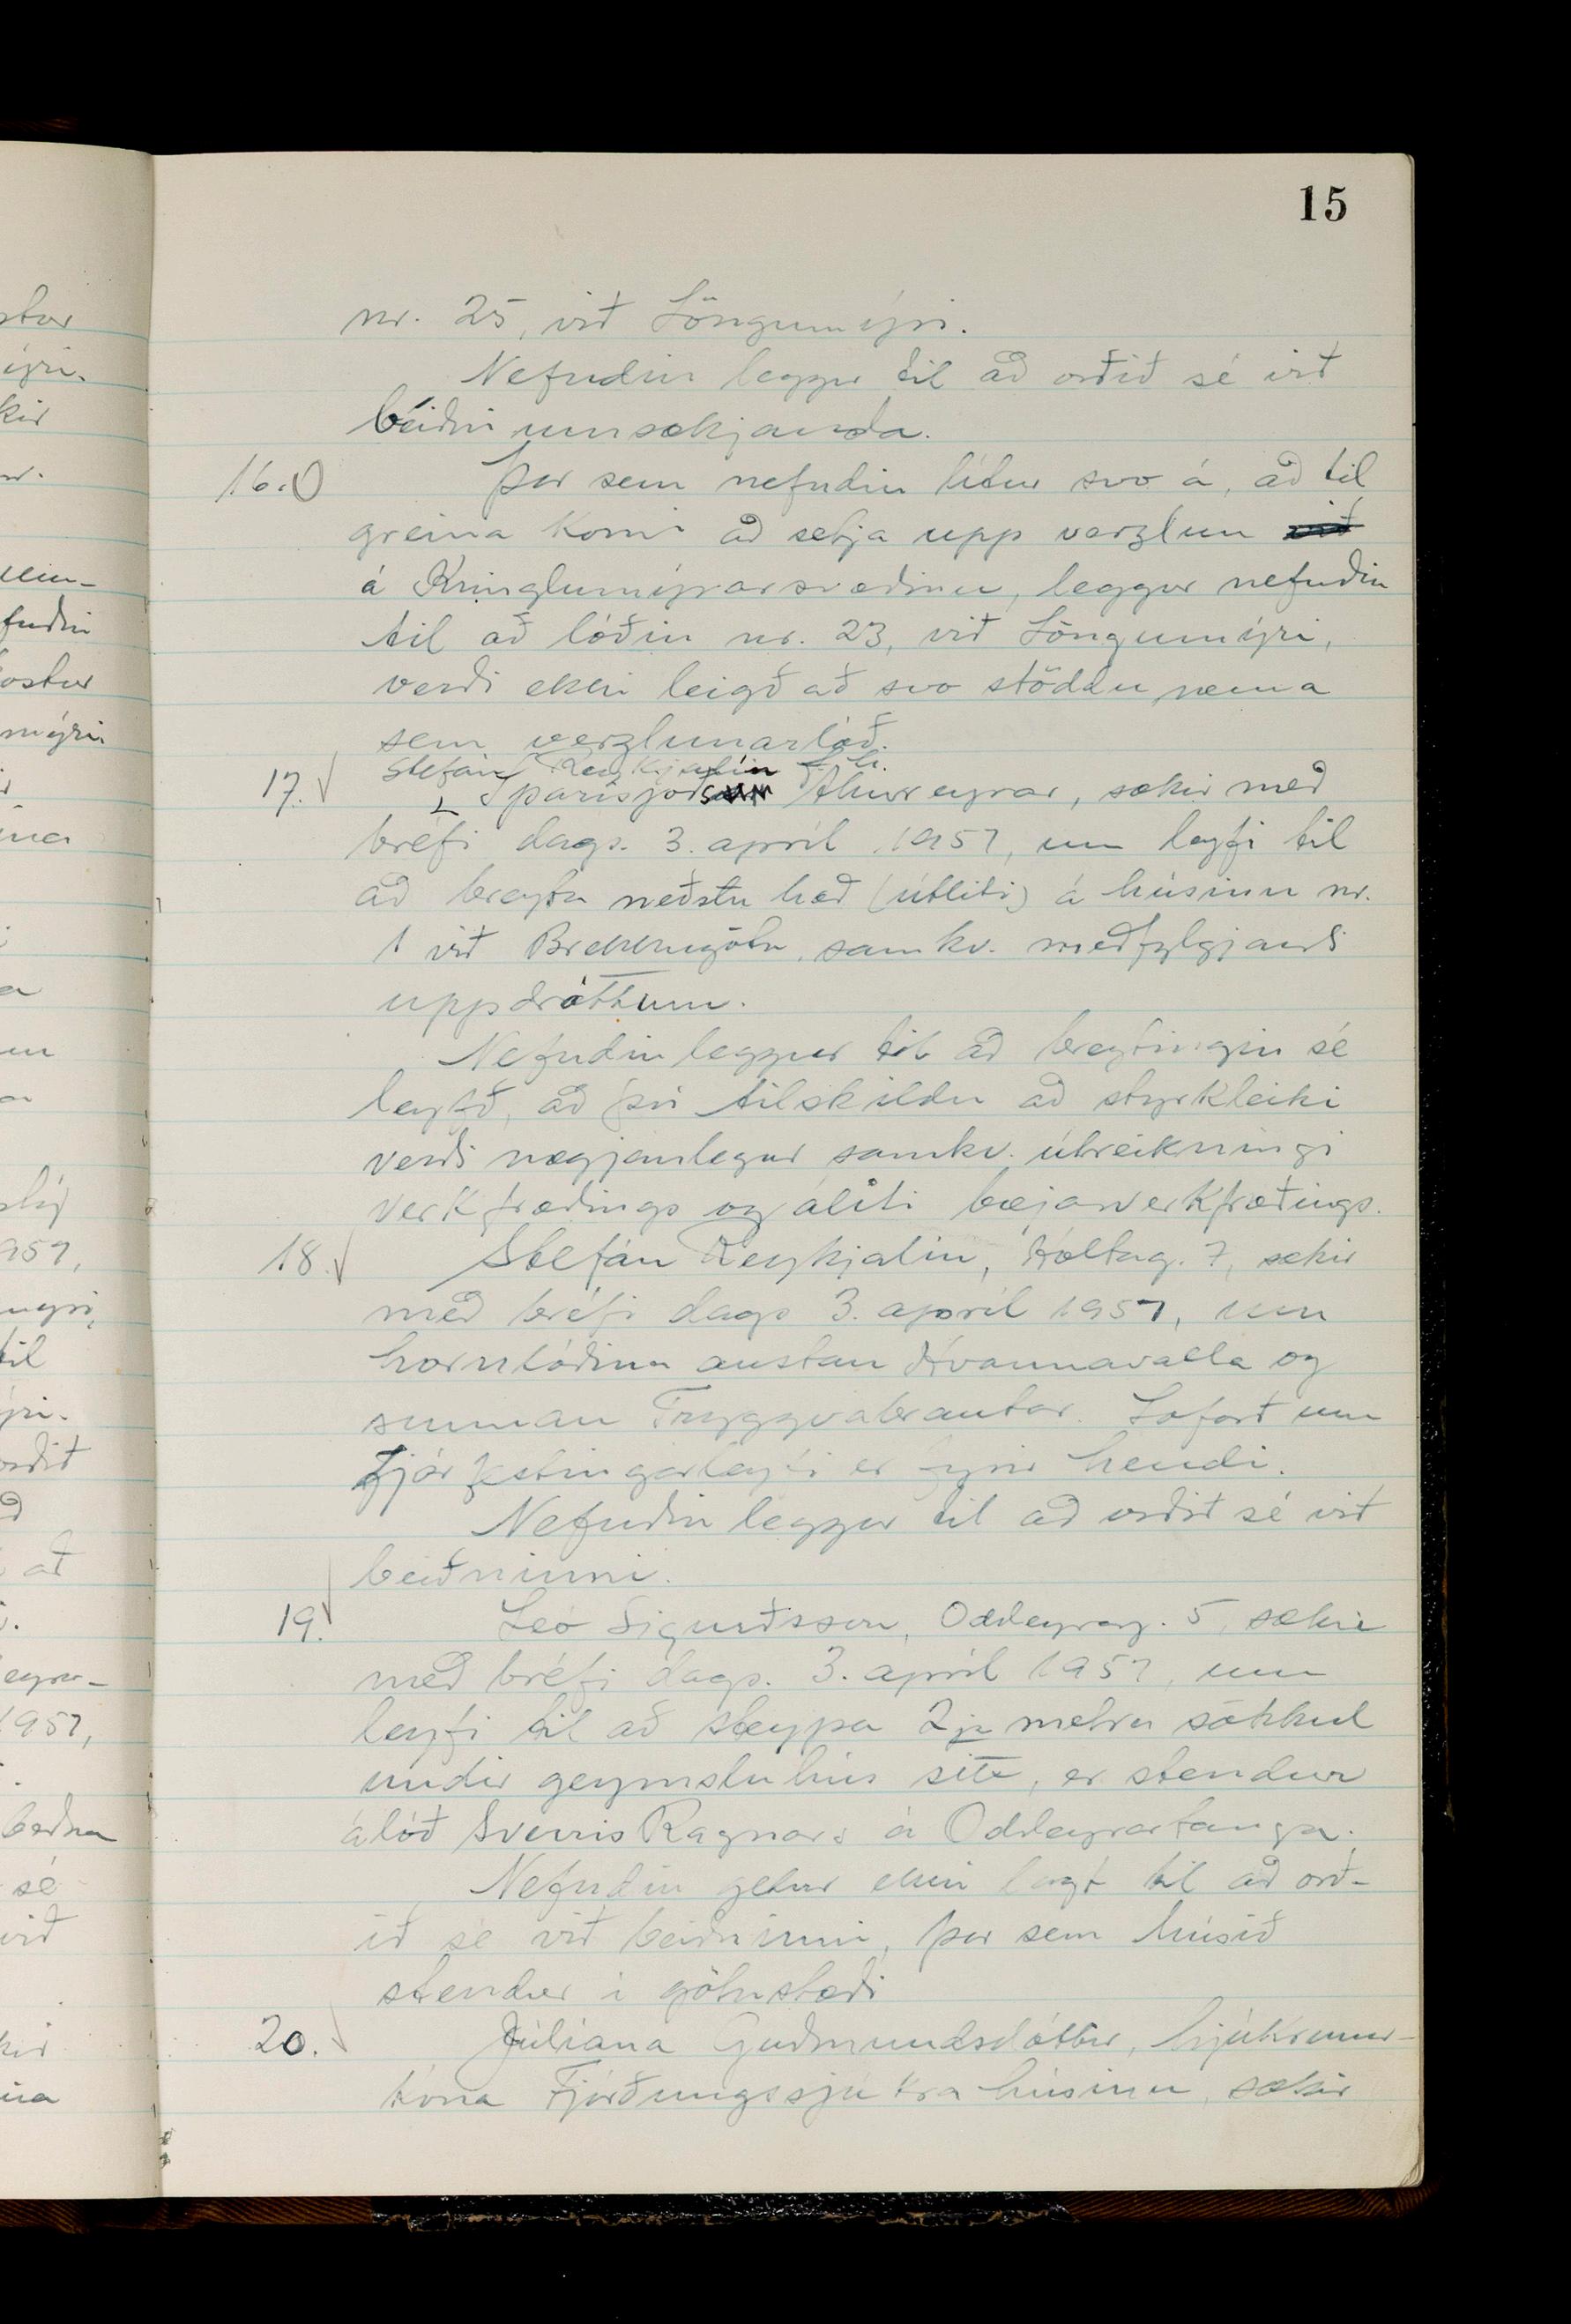 15
nr. 25, við Löngumýri.
Nefndin leggur til að orðið sé við
beiðni umsækjanda.
16. Þar sem nefndin lítur svo á, að til
greina komi að setja upp verzlun við
á Kringlumýrarsvæðinu, leggur nefndin
til að lóðin nr. 23, við Löngumýri,
verði ekki leigð að svo stöddu nema
sem verzlunarlóð.
Stefán Reykjalín f.h.
17. Sparisjóðs Akureyrar, sækir með
bréfi dags. 3. apríl 1957, um leyfi til
að breyta neðstu hæð (útliti) á húsinu nr.
1 við Brekkugötu, samkv. meðfylgjandi
uppdráttum.
Nefndin leggur til að breytingin sé
leyfð, að því tilskildu að styrkleiki
verði nægjanlegur samkv. útreikningi
verkfræðings og áliti bæjarverkfræðings.
18. Stefán Reykjalín, Holtag. 7, sækir
með bréfi dags 3. apríl 1957, um
hornlóðina austan Hvannavalla og
sunnan Tryggvabrautar. Loforð um
fjárfestingarleyfi er fyrir hendi.
Nefndin leggur til að orðið sé við
beiðninni.
19. Leó Sigurðsson, Oddeyrarg. 5, sækir
með bréfi dags. 3. apríl 1957, um
leyfi til að steypa 2ja metra sökkul
undir geymsluhús sitt, er stendur
á lóð Sverris Ragnars á Oddeyrartanga.
Nefndin getur ekki lagt til að orð-
ið sé við beiðninni, þar sem húsið
stendur í götustæði
20. Júlíana Guðmundsdóttir, hjúkrunar-
kona Fjórðungssjúkrahúsinu, sækir